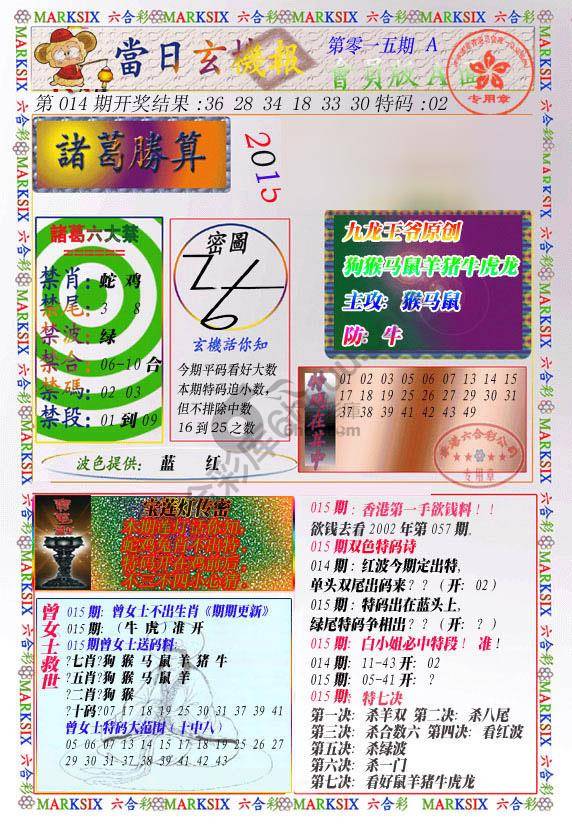 MARKSIX 六合彩 MARKSIX 六合彩 MARKSIX 六合彩 MARKSIX 六合彩
當日玄機報
第零一五期 A
會員版A面
专用章
第 014 期开奖结果 :36 28 34 18 33 30 特码 :02
諸葛勝算
2015
諸葛六大禁
禁肖: 蛇 鸡
禁尾: 3 8
禁波: 绿
禁合: 06-10 合
禁碼: 02 03
禁段: 01 到 09
密圖
玄機活你知
今期平码看好大数
本期特码追小数,
但不排除中数
16 到 25 之数
九龙王爷原创
狗猴马鼠羊猪牛虎龙
主攻: 猴马鼠
防: 牛
01 02 03 05 06 07 13 14 15
17 18 19 25 26 27 29 30 31
37 38 39 41 42 43 49
香港六合彩公司
专用章
波色提供: 蓝 红
宝莲灯传密
曾女士救世
015 期: 曾女士不出生肖《期期更新》
015 期: (牛 虎) 准 开
015 期曾女士送码料:
?七肖?狗 猴 马 鼠 羊 猪 牛
?五肖?狗 猴 马 鼠 羊
?二肖?狗 猴
?十码?07 17 18 19 25 30 31 37 39 41
曾女士特码大范围 (十中八)
05 06 07 13 14 15 17 18 19 25 26 27
29 30 31 37 38 39 41 42 43
015 期: 香港第一手欲钱料!!
欲钱去看 2002 年第 057 期.
015 期双色特码诗
014 期: 红波今期定出特,
单头双尾出码来?? (开: 02)
015 期: 特码出在蓝头上,
绿尾特码争相出?? (开: ?)
015 期: 白小姐必中特段! 准!
014 期: 11-43 开: 02
015 期: 05-41 开: ?
015 期: 特七决
第一决: 杀羊双 第二决: 杀八尾
第三决: 杀合数六 第四决: 看红波
第五决: 杀绿波
第六决: 杀一门
第七决: 看好鼠羊猪牛虎龙
MARKSIX 六合彩 MARKSIX 六合彩 MARKSIX 六合彩 MARKSIX 六合彩